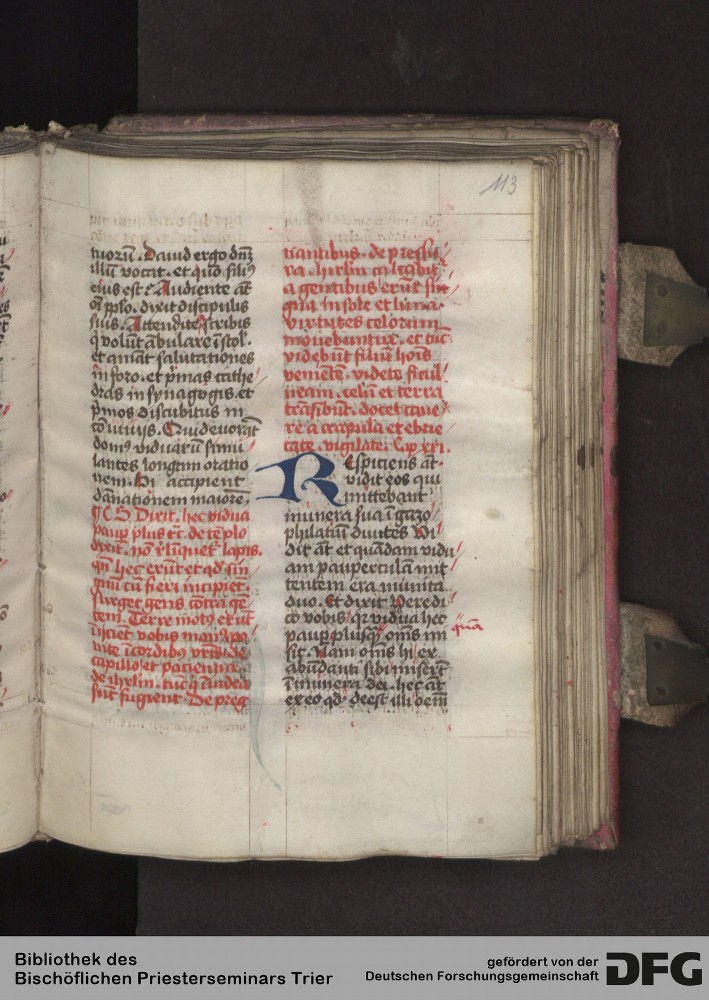 113
tuorū. Dauid ergo dn̄ꝫ
illū vocat. et quō filiꝰ
eius est? Audiente aūt
oī pplo. dixit discipulis
suis. Attendite a scribis
q̄ volūt ābulare ī stol'
et amāt salutationes
in foro. et p̄mas cathe
dras in synagogis. et
p̄mos discubitus in
cōuiuijs. Qui deuorāt
domꝰ viduarū simu
lantes longam oratio
nem. Hi accipient
dānationem maiorē.
Dixit. hec vidua
paup̄ plus de tēplo
dixit. nō lapis.
qn̄ hec erūt et qd̄ sig
nū cū fieri incipiēt.
surget gens cōtra gē
tem. Terre motꝰ erūt
īicient vobis manꝰ po
nite ī cordibꝰ vr̄is. de
capillo. et pacientia.
de ihrlm. tūc q̄ ī iudea
sūt fugient. De preg
nantibus. de pressu
ra. ihrlm calcabit̄
a gentibus erūt sig
na in sole et luna.
virtutes celorum
mouebuntur. et tūc
videbūt filiū hoīs
venientē. videte ficul
neam. celū et terra
trāsibūt. docet caue
re a crapula et ebrie
tate. vigilate. Cap xxi.
Respiciens aūt
vidit eos qui
mittebant
munera sua ī gazo
philatiū diuites Vi
dit aūt et quādam vidu
am paup̄erculam mit
tentem era minuta
duo. Et dixit Vere di
co vobis qꝛ vidua hec
paup̄ plusqꝫ om̄s mi
sit. Nam om̄s hi ex
abūdanti sibi miserūt
ī munera dei. hec aūt
ex eo qd̄ deest illi oem̄
quā
Bibliothek des
Bischöflichen Priesterseminars Trier
gefördert von der
Deutschen Forschungsgemeinschaft
DFG